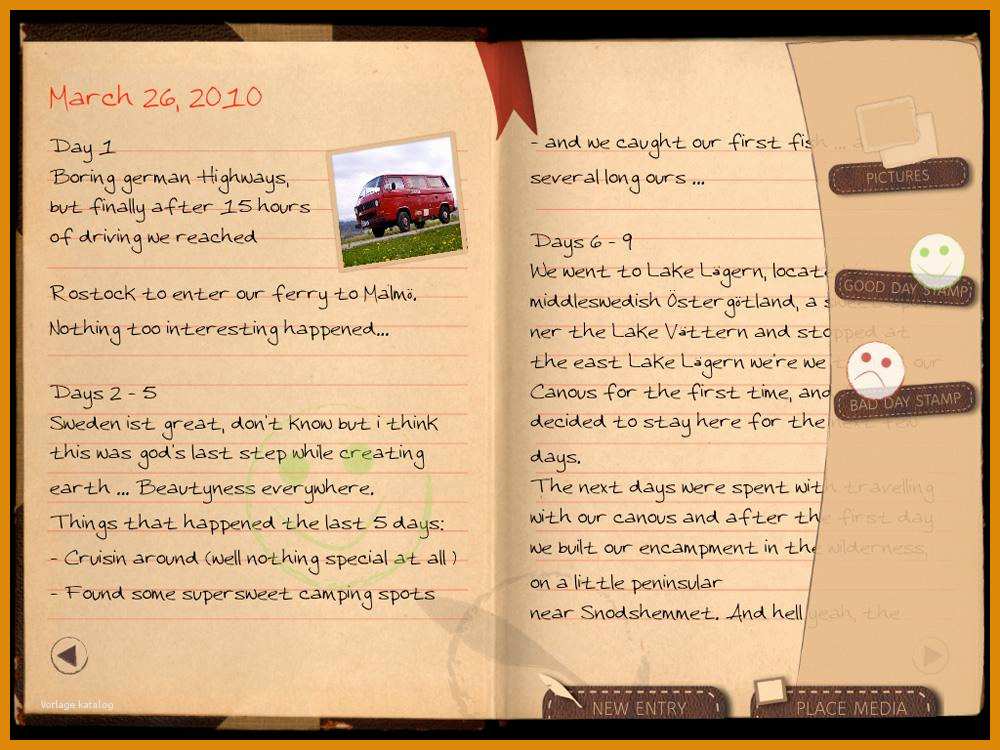 March 26, 2010
Day 1
Boring german Highways,
but finally after 15 hours
of driving we reached
Rostock to enter our ferry to Malmö.
Nothing too interesting happened...
Days 2 - 5
Sweden ist great, don't know but i think
this was god's last step while creating
earth ... Beautyness everywhere.
Things that happened the last 5 days:
- Cruisin around (well nothing special at all )
- Found some supersweet camping spots
Vorlage katalog
- and we caught our first fish ...
several long ours ...
Days 6 - 9
We went to Lake Lägern,
middleswedish Östergötland, a
ner the Lake Vättern and stopped at
the east Lake Lägern we're we our
Canous for the first time, and
decided to stay here for the next few
days.
The next days were spent with travelling
with our canous and after the first day
we built our encampment in the wilderness,
on a little peninsular
near Snodshemmet. And hell yeah, the
PICTURES
GOOD DAY STAMP
BAD DAY STAMP
NEW ENTRY
PLACE MEDIA